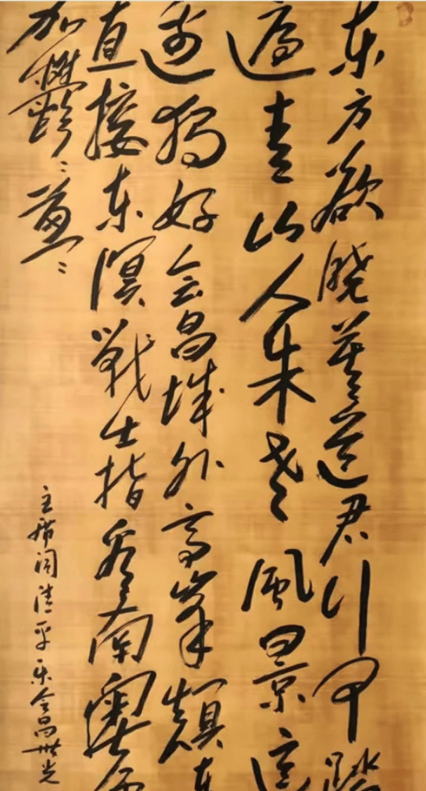 东方欲晓莫道君行早踏
遍青山人未老风景这
边独好会昌城外高峯颠连
直接东溟战士指看南粤更
加鬱〻葱〻
主席词清平乐会昌世光